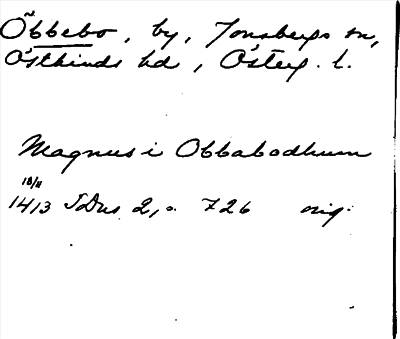 Öbbebo, by, Jonsbergs sn,
Östkinds hd, Österg. l.
Magnus i Obbabodhum
18/11
1413 SDns 2, s. 726 orig.